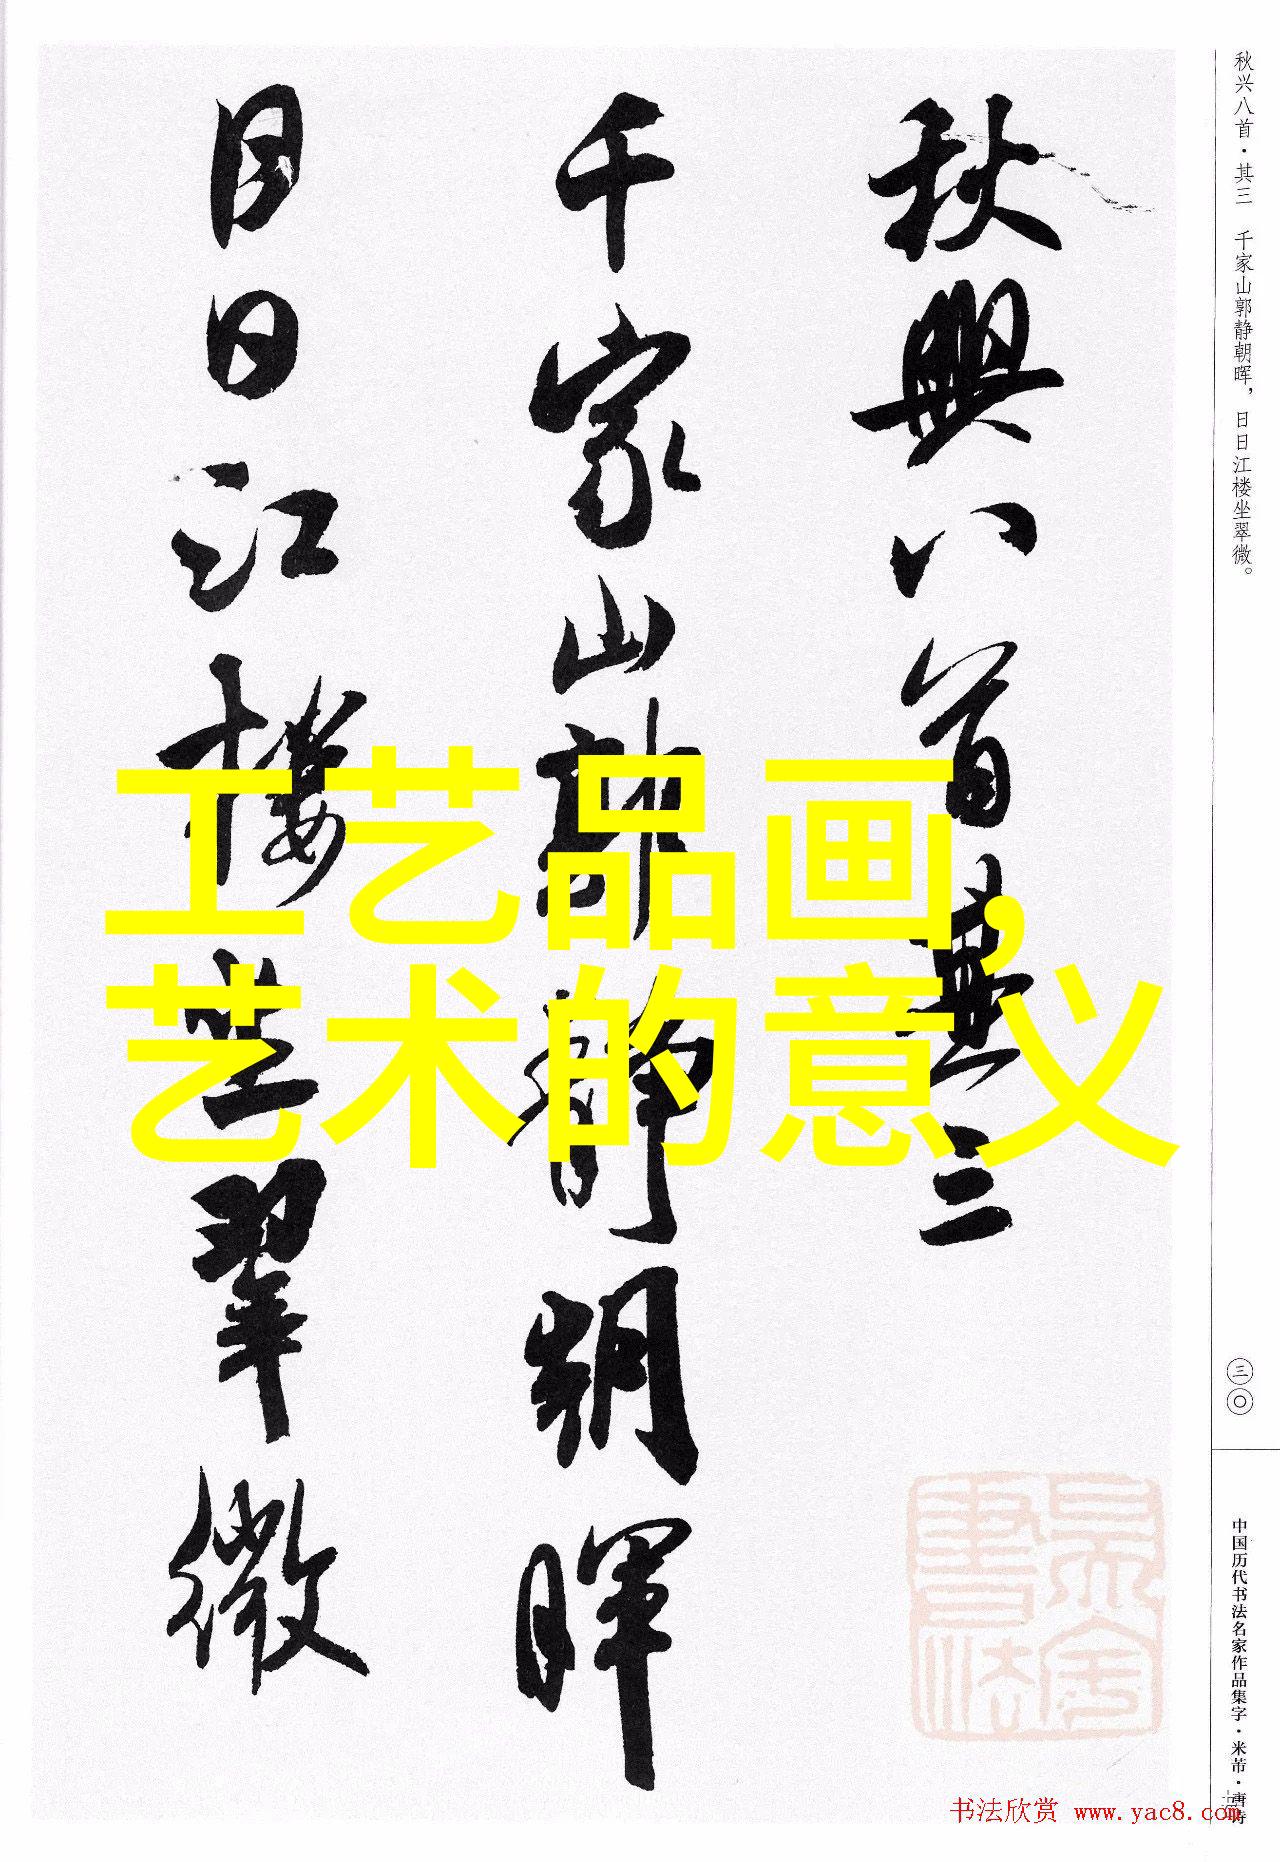 秋兴八首·其三 千家山郭静朝晖，日日江楼坐翠微。
三〇
中国历代书法名家作品集字·米芾·唐诗
秋興八首其三
千家山郭靜朝暉
日日江樓坐翠微
工艺品画，
艺术的意义
书法欣赏 www.yac8.com